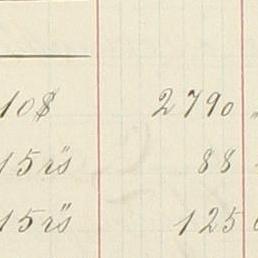 10$ 2790 "
15 rs" 88
15 rs" 125